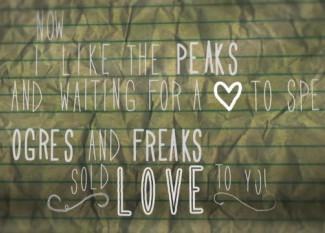 NOW
I LIKE THE PEAKS
AND WAITING FOR A ♡ TO SPE
OGRES AND FREAKS
SOLD LOVE TO YOU